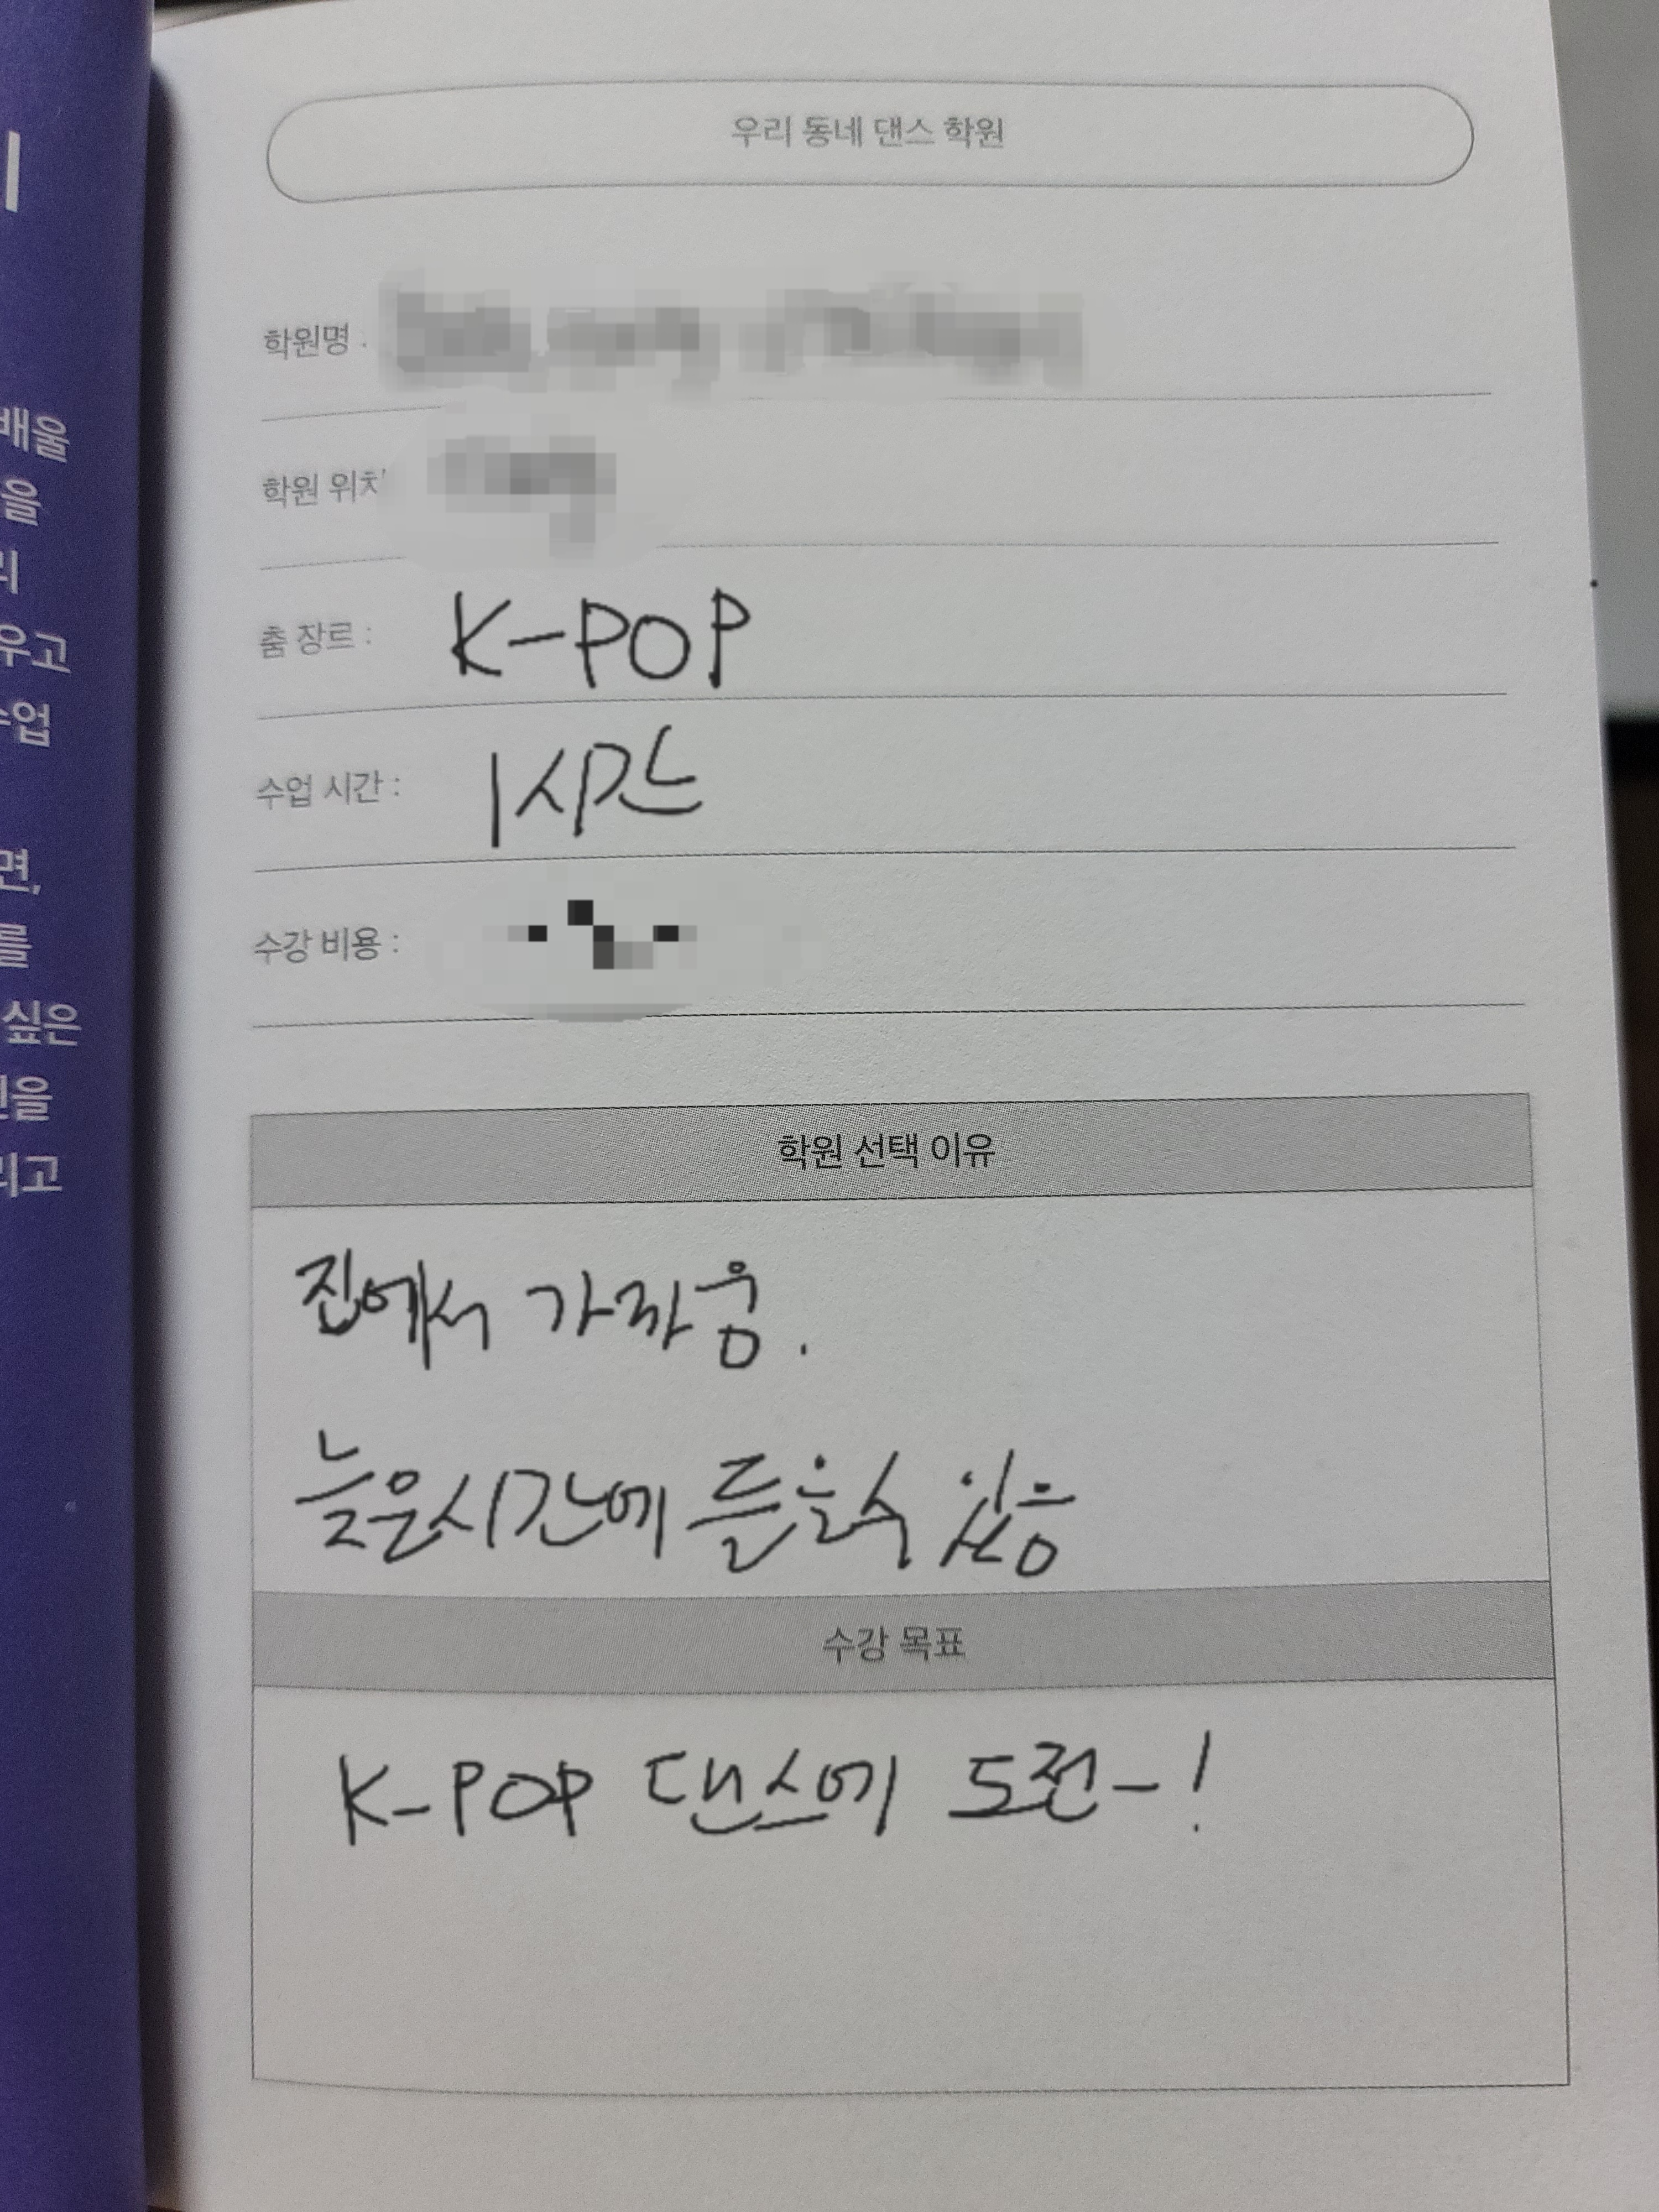 우리 동네 댄스 학원
학원명 :
학원 위치
춤 장르 : K-POP
수업 시간 : 1시간
수강 비용 :
학원 선택 이유
집에서 가까움.
늦은시간에 들을수 있음
수강 목표
K-POP 댄스에 도전-!
배울
을
리
우고
수업
면,
를
싶은
리고